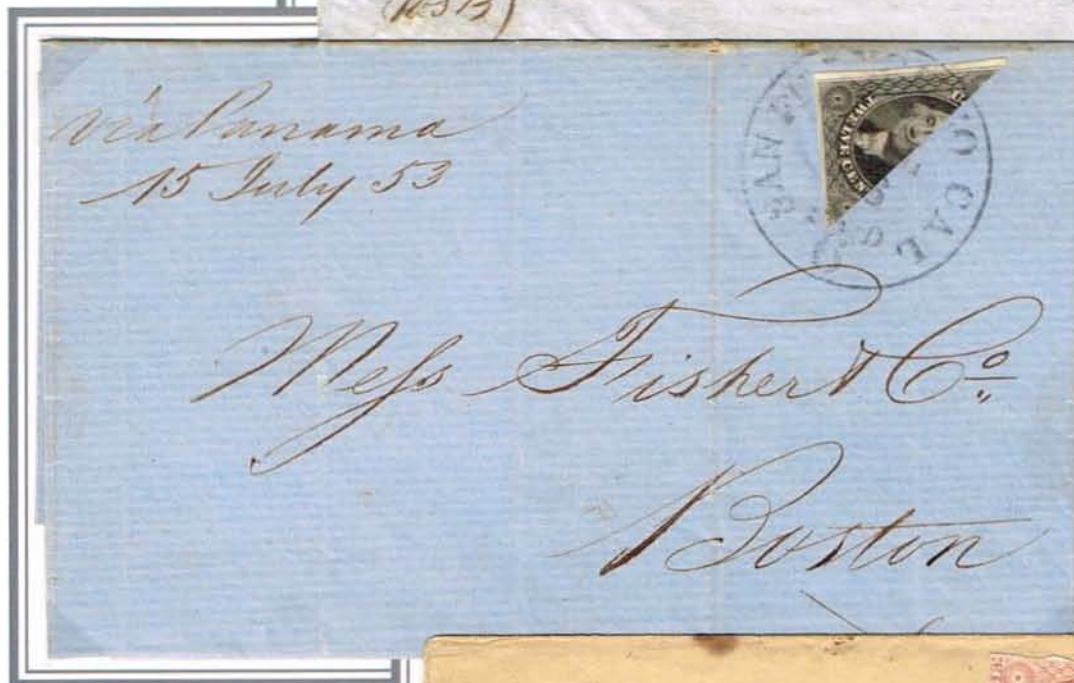 via Panama
15 July 53
SAN F CO CAL
TWELVE CEN
Mess Fisher & Co.
Boston